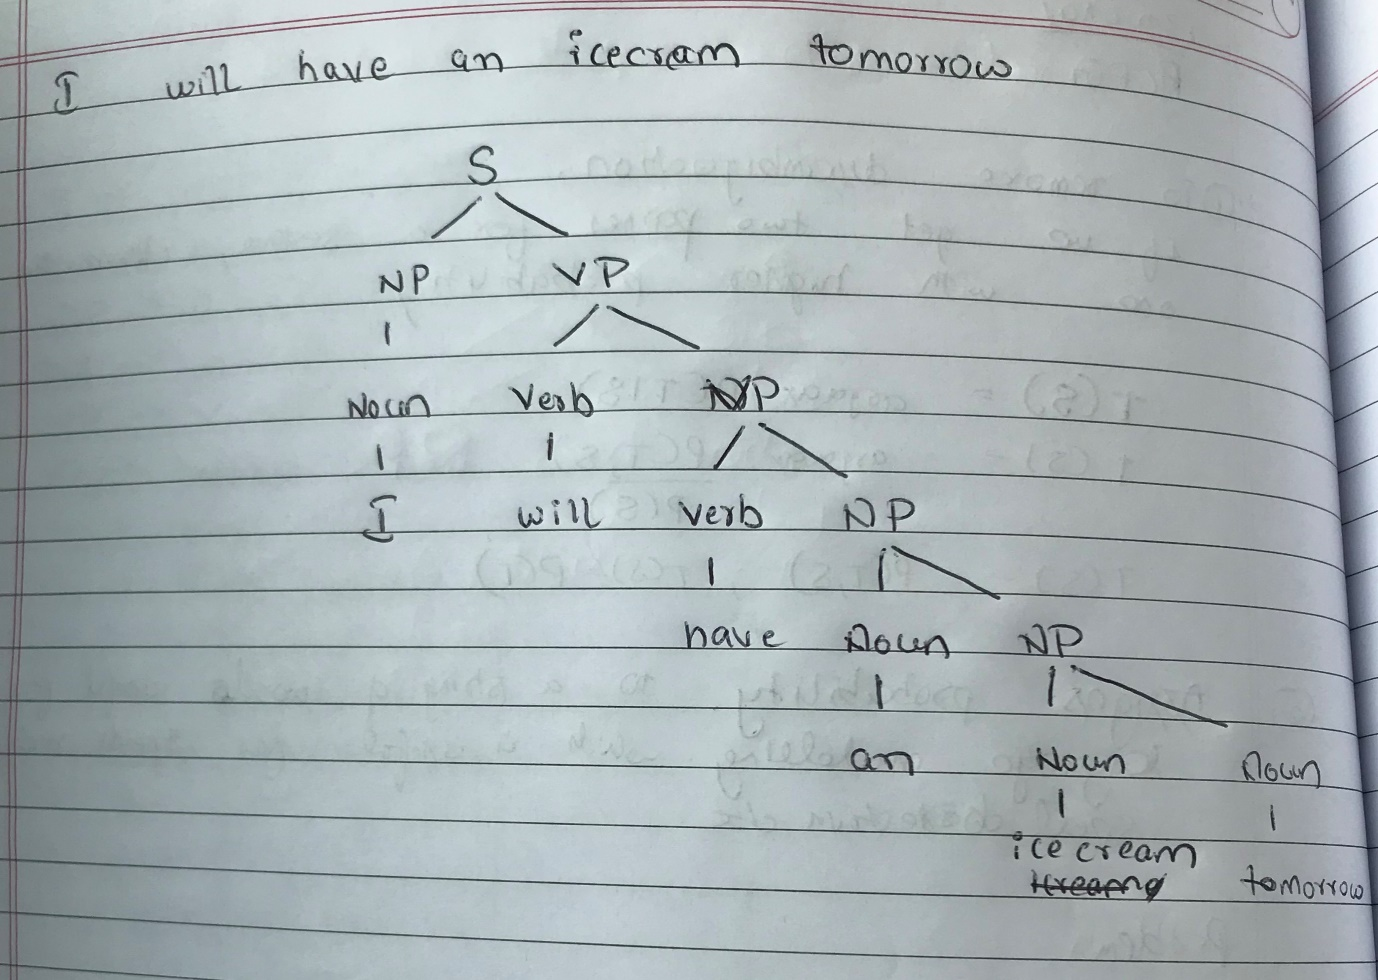 I will have an icecream tomorrow
S
NP VP
Noun Verb NP
I will verb NP
have Noun NP
an Noun Noun
ice cream
tomorrow